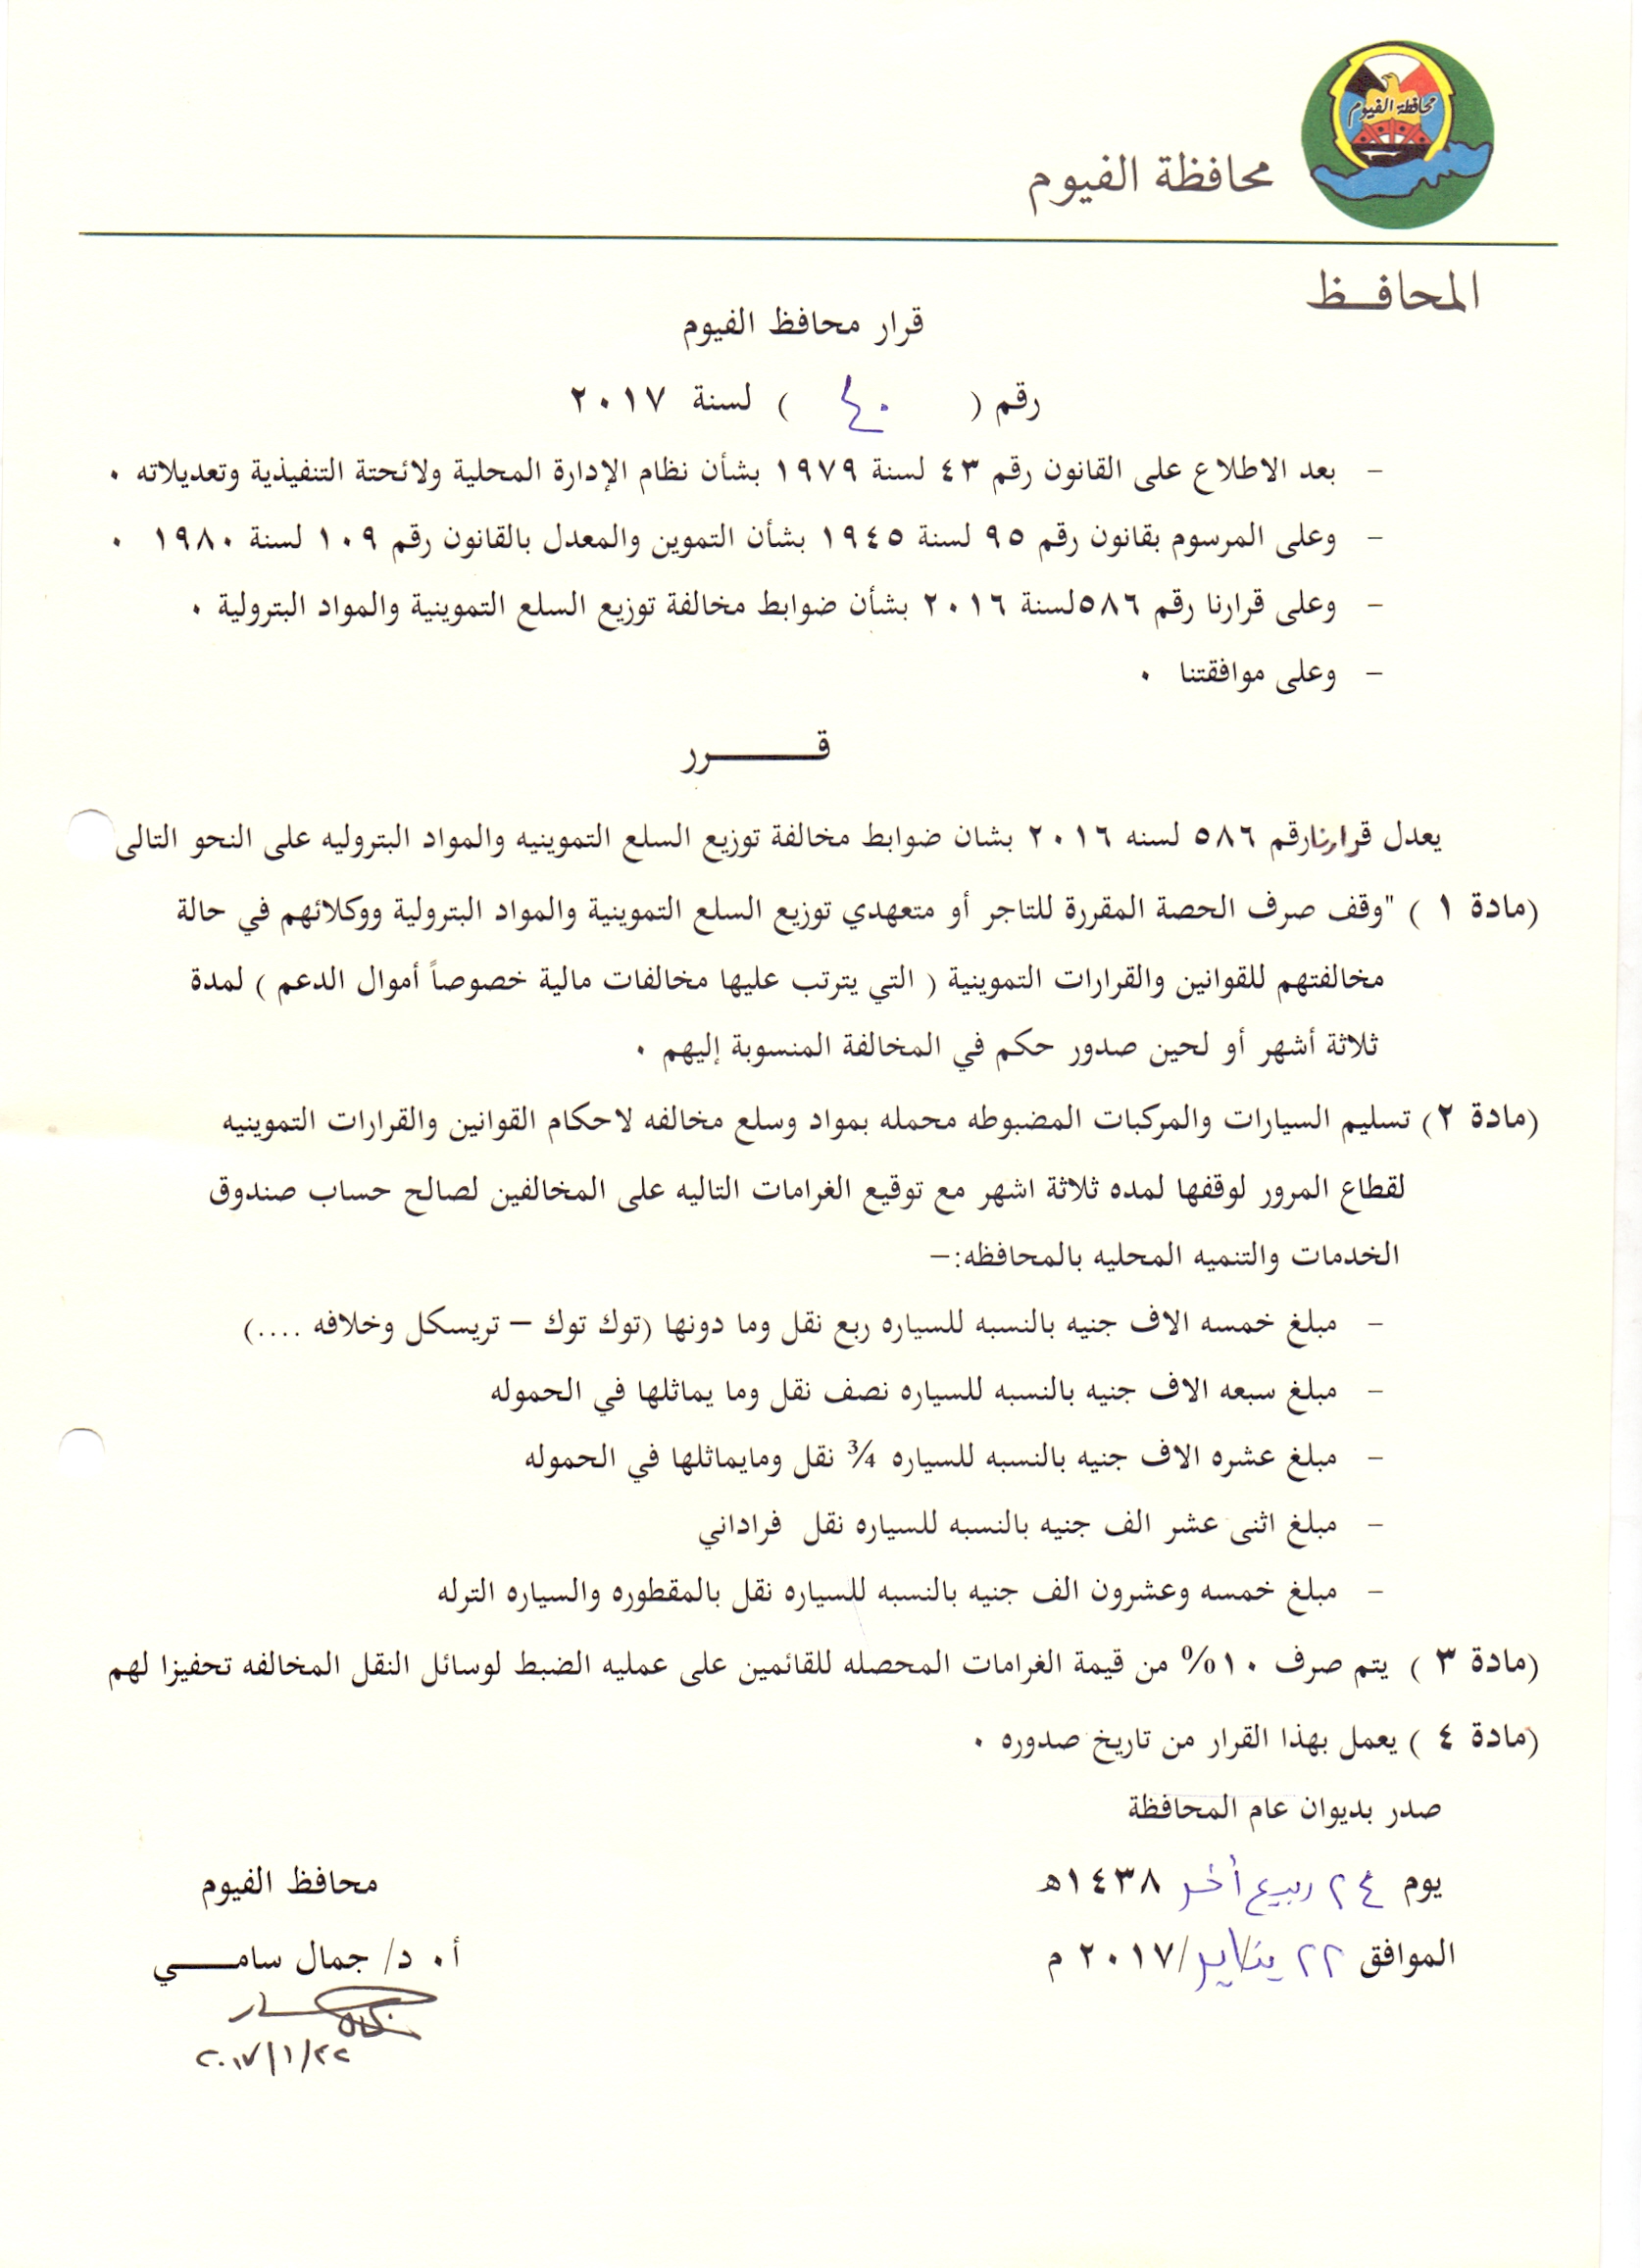 محافظة الفيوم
محافظة الفيوم
المحافـــظ
قرار محافظ الفيوم
رقم ( ٤٠ ) لسنة ٢٠١٧
- بعد الاطلاع على القانون رقم ٤٣ لسنة ١٩٧٩ بشأن نظام الإدارة المحلية ولائحتة التنفيذية وتعديلاته ٠
- وعلى المرسوم بقانون رقم ٩٥ لسنة ١٩٤٥ بشأن التموين والمعدل بالقانون رقم ١٠٩ لسنة ١٩٨٠ ٠
- وعلى قرارنا رقم ٥٨٦لسنة ٢٠١٦ بشأن ضوابط مخالفة توزيع السلع التموينية والمواد البترولية ٠
- وعلى موافقتنا ٠
قـــــــرر
يعدل قرارنارقم ٥٨٦ لسنه ٢٠١٦ بشان ضوابط مخالفة توزيع السلع التموينيه والمواد البتروليه على النحو التالى
(مادة ١ ) "وقف صرف الحصة المقررة للتاجر أو متعهدي توزيع السلع التموينية والمواد البترولية ووكلائهم في حالة
مخالفتهم للقوانين والقرارات التموينية ( التي يترتب عليها مخالفات مالية خصوصاً أموال الدعم ) لمدة
ثلاثة أشهر أو لحين صدور حكم في المخالفة المنسوبة إليهم ٠
(مادة ٢ ) تسليم السيارات والمركبات المضبوطه محمله بمواد وسلع مخالفه لاحكام القوانين والقرارات التموينيه
لقطاع المرور لوقفها لمده ثلاثة اشهر مع توقيع الغرامات التاليه على المخالفين لصالح حساب صندوق
الخدمات والتنميه المحليه بالمحافظه:–
- مبلغ خمسه الاف جنيه بالنسبه للسياره ربع نقل وما دونها (توك توك – تريسكل وخلافه ....)
- مبلغ سبعه الاف جنيه بالنسبه للسياره نصف نقل وما يماثلها في الحموله
- مبلغ عشره الاف جنيه بالنسبه للسياره ¾ نقل ومايماثلها في الحموله
- مبلغ اثنى عشر الف جنيه بالنسبه للسياره نقل فراداني
- مبلغ خمسه وعشرون الف جنيه بالنسبه للسياره نقل بالمقطوره والسياره الترله
(مادة ٣ ) يتم صرف ١٠% من قيمة الغرامات المحصله للقائمين على عمليه الضبط لوسائل النقل المخالفه تحفيزا لهم
(مادة ٤ ) يعمل بهذا القرار من تاريخ صدوره ٠
صدر بديوان عام المحافظة
يوم ٢٤ ربيع أخر ١٤٣٨هـ
الموافق ٢٢ يناير/٢٠١٧ م
محافظ الفيوم
أ٠ د/ جمال سامـــــي
٢٠١٧/١/٢٢